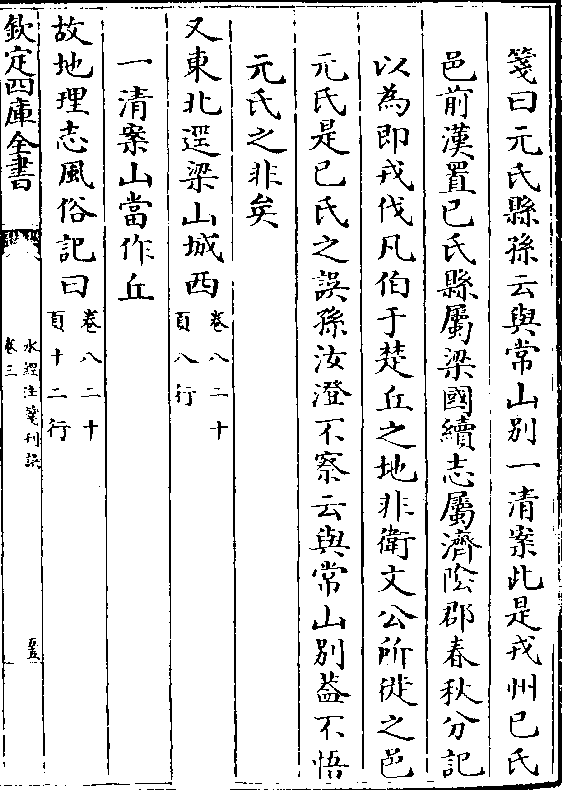 箋曰元氏縣孫云與常山別一清案此是戎州已氏
邑前漢置已氏縣屬梁國續志屬濟陰郡春秋分記
以為即戎伐凡伯于楚丘之地非衛文公所徙之邑
元氏是已氏之誤孫汝澄不察云與常山別葢不悟
元氏之非矣
又東北逕梁山城西 卷八二十
頁八行
一清案山當作丘
故地理志風俗記曰 卷八二十
頁十二行
欽定四庫全書
水經注箋刊誤
卷三